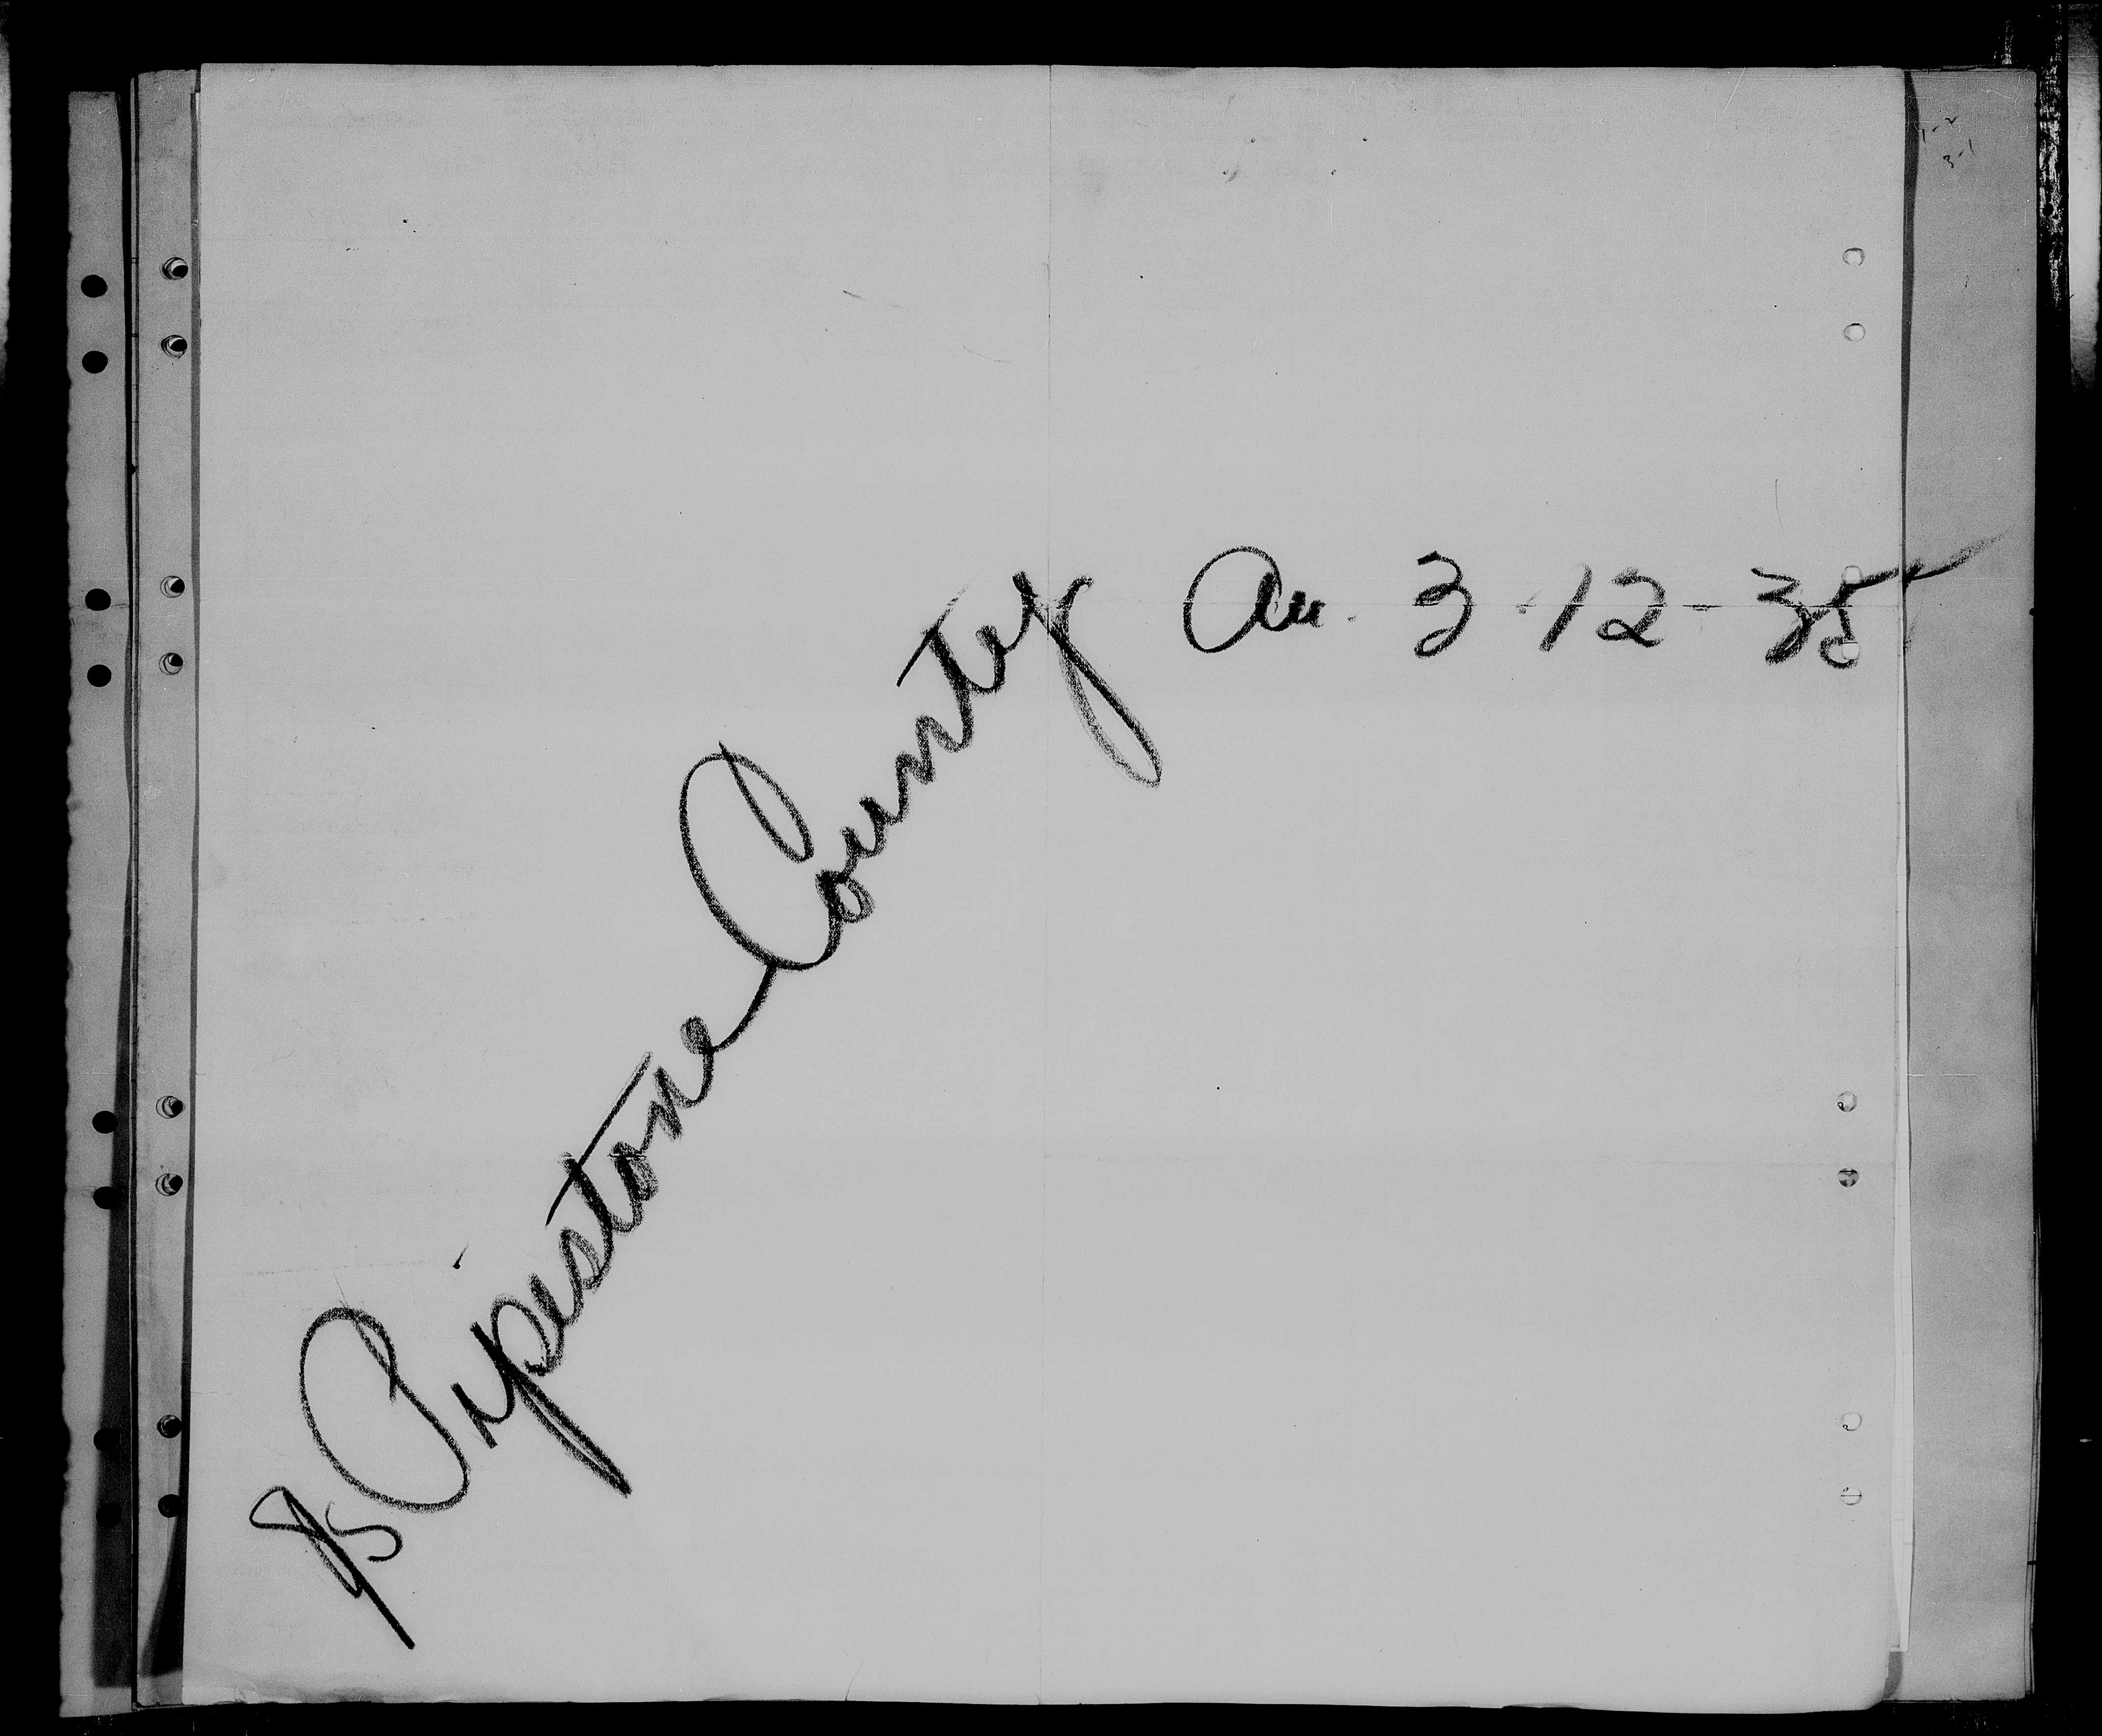 85 Pipestone County
Au. 3-12-35
1-2
3-1